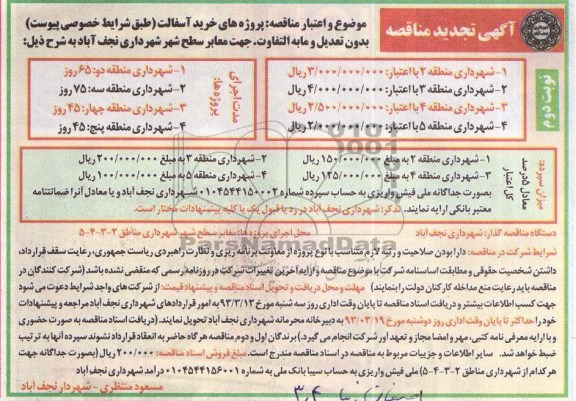 آگهی تجدید مناقصه
نوبت دوم
موضوع و اعتبار مناقصه: پروژه های خرید آسفالت (طبق شرایط خصوصی پیوست)
بدون تعدیل و مابه التفاوت. جهت معابر سطح شهر شهرداری نجف آباد به شرح ذیل:
۱- شهرداری منطقه ۲ با اعتبار: ۳/۰۰۰/۰۰۰/۰۰۰ ریال
۲- شهرداری منطقه ۳ با اعتبار: ۴/۰۰۰/۰۰۰/۰۰۰ ریال
۳- شهرداری منطقه ۴ با اعتبار: ۲/۵۰۰/۰۰۰/۰۰۰ ریال
۴- شهرداری منطقه ۵ با اعتبار: ۲/۰۰۰/۰۰۰/۰۰۰ ریال
مدت اجرای پروژه ها:
۱- شهرداری منطقه دو: ۶۵ روز
۲- شهرداری منطقه سه: ۷۵ روز
۳- شهرداری منطقه چهار: ۴۵ روز
۴- شهرداری منطقه پنج: ۴۵ روز
میزان سپرده: معادل ۵ درصد کل اعتبار
۱- شهرداری منطقه ۲ به مبلغ ۱۵۰/۰۰۰/۰۰۰ ریال ۲- شهرداری منطقه ۳ به مبلغ ۲۰۰/۰۰۰/۰۰۰ ریال
۳- شهرداری منطقه ۴ به مبلغ ۱۲۵/۰۰۰/۰۰۰ ریال ۴- شهرداری منطقه ۵ به مبلغ ۱۰۰/۰۰۰/۰۰۰ ریال
بصورت جداگانه ملی فیش واریزی به حساب سپرده شماره ۰۱۰۴۵۴۴۱۵۰۰۰۲ شهرداری نجف آباد و یا معادل آنرا ضمانتنامه
معتبر بانکی ارایه نمایند. تذکر: شهرداری نجف آباد در رد یا قبول یک یا کلیه پیشنهادات مختار است.
دستگاه مناقصه گذار: شهرداری نجف آباد محل اجرای پروژه ها: معابر سطح شهر، شهرداری مناطق ۲-۳-۴-۵
شرایط شرکت در مناقصه: دارا بودن صلاحیت و رتبه لازم متناسب با نوع پروژه از معاونت برنامه ریزی و نظارت راهبردی ریاست جمهوری، رعایت سقف قرارداد،
داشتن شخصیت حقوقی و مطابقت اساسنامه شرکت با موضوع مناقصه و ارایه آخرین تغییرات شرکت در روزنامه رسمی که منقضی نشده باشد (شرکت کنندگان در
مناقصه باید رعایت منع مداخله کارکنان دولت را بنمایند) مهلت و محل دریافت و تحویل اسناد مناقصه و پیشنهاد قیمت: از شرکت های واجد شرایط دعوت می شود
جهت کسب اطلاعات بیشتر و دریافت اسناد مناقصه تا پایان وقت اداری روز سه شنبه مورخ ۹۳/۳/۱۳ به امور قراردادهای شهرداری نجف آباد مراجعه و پیشنهادات
خود را حداکثر تا پایان وقت اداری روز دوشنبه مورخ ۹۳/۰۳/۱۹ به دبیرخانه محرمانه شهرداری نجف آباد تحویل نمایند. (دریافت اسناد مناقصه به صورت حضوری
و با ارایه معرفی نامه کتبی، مهر و امضا مجاز و تعهد آور شرکت انجام می گیرد). برندگان اول و دوم مناقصه هر گاه حاضر به انعقاد قرارداد نشوند سپرده آنها به ترتیب
ضبط خواهد شد. سایر اطلاعات و جزییات مربوط به مناقصه در اسناد مناقصه مندرج است. مبلغ فروش اسناد مناقصه: ۲۰۰/۰۰۰ ریال (بصورت جداگانه جهت
هر کدام از شهرداری مناطق ۲-۳-۴-۵) ملی فیش واریزی به حساب سیبا بانک ملی به شماره ۰۱۰۴۵۴۴۱۵۶۰۰۱ درآمد شهرداری نجف آباد
مسعود منتظری - شهردار نجف آباد
ParsNamadData
۳,۴